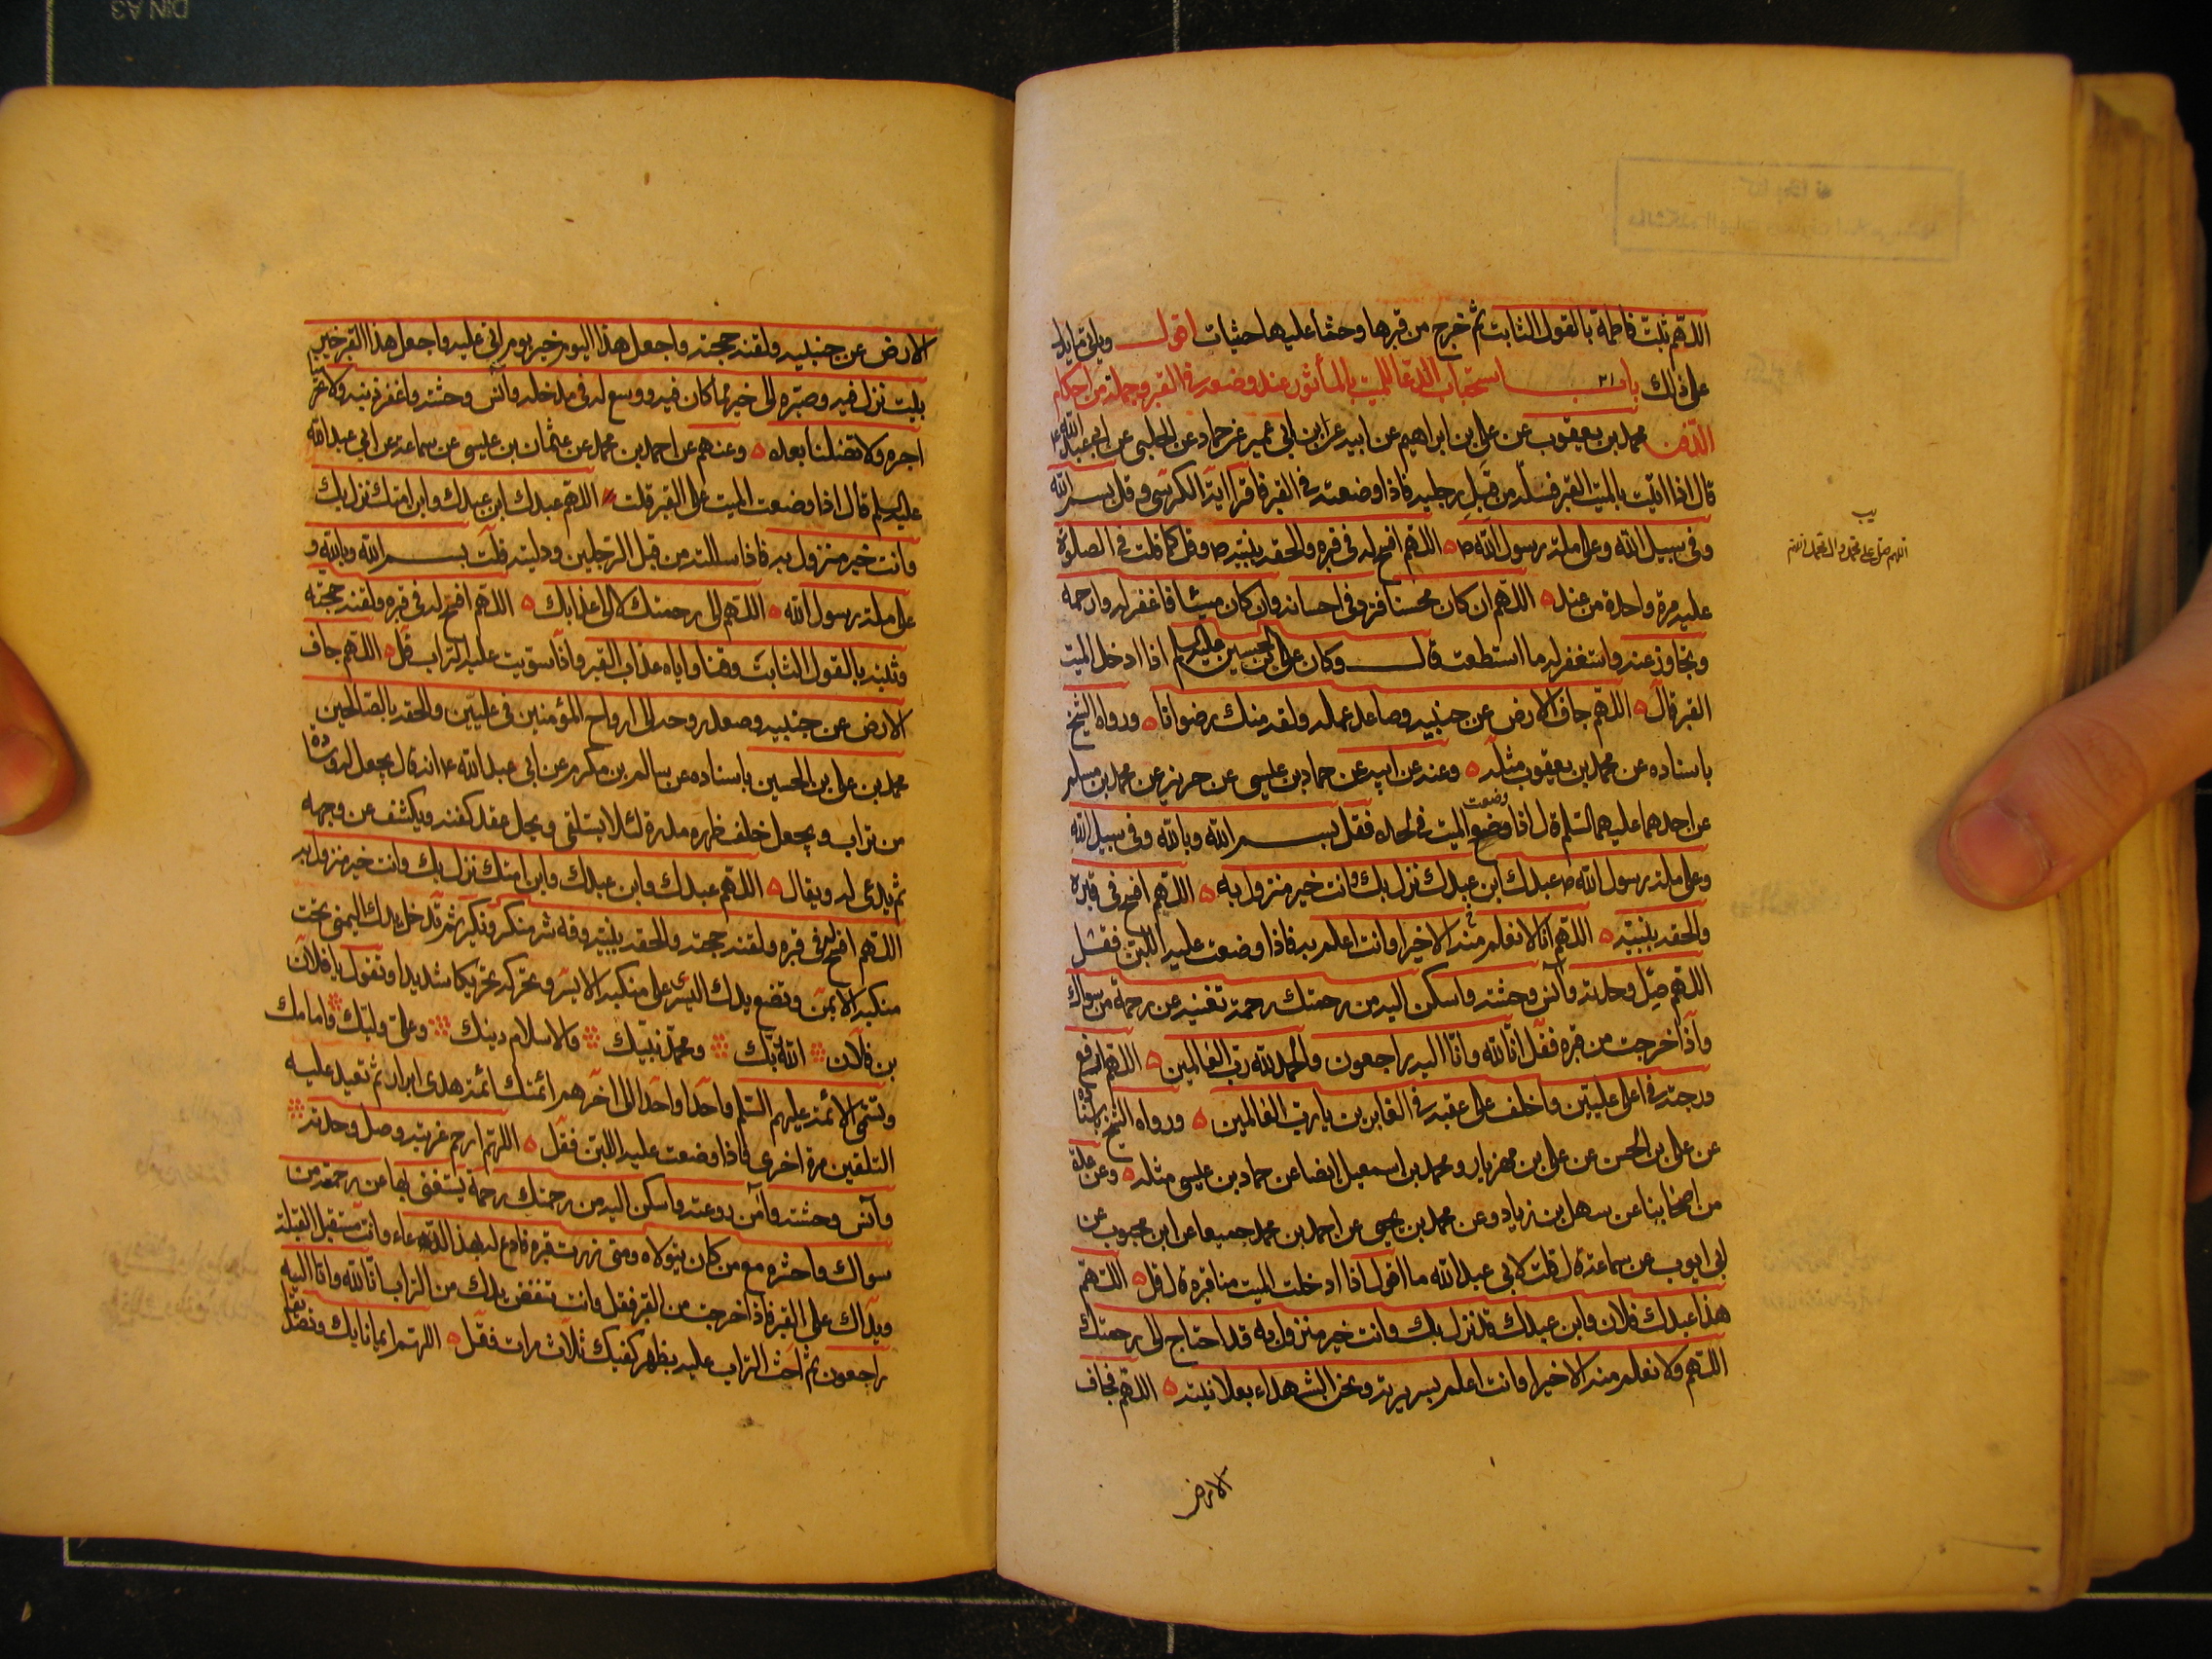 اللهم ثبت فاطمة بالقول الثابت ثم خرج من قبرها وحثا عليها حثيات اقول ويأتي ما يدل
على ذلك باب ٢١ استحباب الدعا للميت بالمأثور عند وضعه في القبر وجملة من احكام
الدفن محمد بن يعقوب عن علي بن ابراهيم عن ابيه عن ابن ابي عمير عن حماد عن الحلبي عن ابي عبد الله ع
قال اذا اتيت بالميت القبر فسله من قبل رجليه فاذا وضعته في القبر فاقرا آية الكرسي وقل بسم الله
وفي سبيل الله وعلى ملة رسول الله ص اللهم افسح له في قبره والحقه بنبيه ص وقل كما قلت في الصلوة
عليه مرة واحدة من عند اللهم ان كان محسنا فزد في احسانه وان كان مسيئا فاغفر له وارحمه
وتجاوز عنه واستغفر له ما استطعت قال وكان علي بن الحسين عليه السلم اذا ادخل الميت
القبر قال اللهم جاف الارض عن جنبيه وصاعد عمله ولقه منك رضوانا ورواه الشيخ
باسناده عن محمد بن يعقوب مثله وعنه عن ابيه عن حماد بن عيسى عن حريز عن محمد بن مسلم
عن احدهما عليهما السلم قال اذا وضع وضعت الميت في لحده فقل بسم الله وبالله وفي سبيل الله
وعلى ملة رسول الله ص عبدك ابن عبدك نزل بك وانت خير منزول به اللهم افسح في قبره
والحقه بنبيه اللهم انا لا نعلم منه الا خيرا وانت اعلم به فاذا وضعت عليه اللبن فقل
اللهم صل وحدته وآنس وحشته واسكن اليه من رحمتك رحمة تغنيه عن رحمة من سواك
واذا خرجت من قبره فقل انا لله وانا اليه راجعون والحمد لله رب العالمين اللهم ارفع
درجته في اعلى عليين واخلف على عقبه في الغابرين يا رب العالمين ورواه الشيخ باسناده
عن علي بن الحسن عن علي بن مهزيار ومحمد بن اسمعيل ايضا عن حماد بن عيسى مثله وعن عدة
من اصحابنا عن سهل بن زياد وعن محمد بن يحيى عن احمد بن محمد جميعا عن ابن محبوب عن
ابي ايوب عن سماعة قال قلت لابي عبد الله ما اقول اذا ادخلت الميت منا قبره قال قل اللهم
هذا عبدك فلان وابن عبدك قد نزل بك وانت خير منزول به قد احتاج الى رحمتك
اللهم ولا نعلم منه الا خيرا وانت اعلم بسريرته ونحن الشهداء بعلانيته اللهم فجاف
الارض
يب
اللهم صل على محمد وال محمد
الارض عن جنبيه ولقنه حجته واجعل هذا اليوم خير يوم اتى عليه واجعل هذا القبر خير
بيت نزل فيه وصيره الى خير مما كان فيه ووسع له في مدخله وآنس وحشته واغفر ذنبه ولا تحرمنا
اجره ولا تضلنا بعده وعنهم عن احمد بن محمد عن عثمان بن عيسى عن سماعة عن ابي عبد الله
عليه السلم قال اذا وضعت الميت على القبر قلت اللهم عبدك ابن عبدك وابن امتك نزل بك
وانت خير منزول به فاذا سللته من قبل الرجلين ودليته قلت بسم الله وبالله و
على ملة رسول الله اللهم الى رحمتك لا الى عذابك اللهم افسح له في قبره ولقنه حجته
وثبته بالقول الثابت وقنا واياه عذاب القبر واذا سويت عليه التراب قل اللهم جاف
الارض عن جنبيه وصعد روحه الى ارواح المؤمنين في عليين والحقه بالصالحين
محمد بن علي بن الحسين باسناده عن سالم بن مكرم عن ابي عبد الله ع انه قال يجعل له وسادة
من تراب ويجعل خلف ظهره مدرة لئلا يستلقي ويحل عقد كفنه ويكشف عن وجهه
ثم يدعى له ويقال اللهم عبدك وابن عبدك وابن امتك نزل بك وانت خير منزول به
اللهم افسح له في قبره ولقنه حجته والحقه بنبيه وقه شر منكر ونكير ثم تدخل يدك اليمنى تحت
منكبه الايمن وتضع يدك اليسرى على منكبه الايسر وتحركه تحريكا شديدا وتقول يا فلان
بن فلان الله ربك ومحمد نبيك والاسلام دينك وعلي وليك وامامك
وتسمي الائمة عليهم السلم واحدا واحدا الى آخرهم ائمتك ائمة هدى ابرار ثم تعيد عليه
التلقين مرة اخرى فاذا وضعت عليه اللبن فقل اللهم ارحم غربته وصل وحدته
وآنس وحشته وآمن روعته واسكن اليه من رحمتك رحمة يستغني بها عن رحمة من
سواك واحشره مع من كان يتولاه ومتى زرت قبره فادع له بهذا الدعاء وانت مستقبل القبلة
ويداك على القبر فاذا خرجت من القبر فقل وانت تنفض يدك من التراب انا لله وانا اليه
راجعون ثم احث التراب عليه بظهر كفيك ثلاث مرات فقل اللهم ايمانا بك وتصديقا